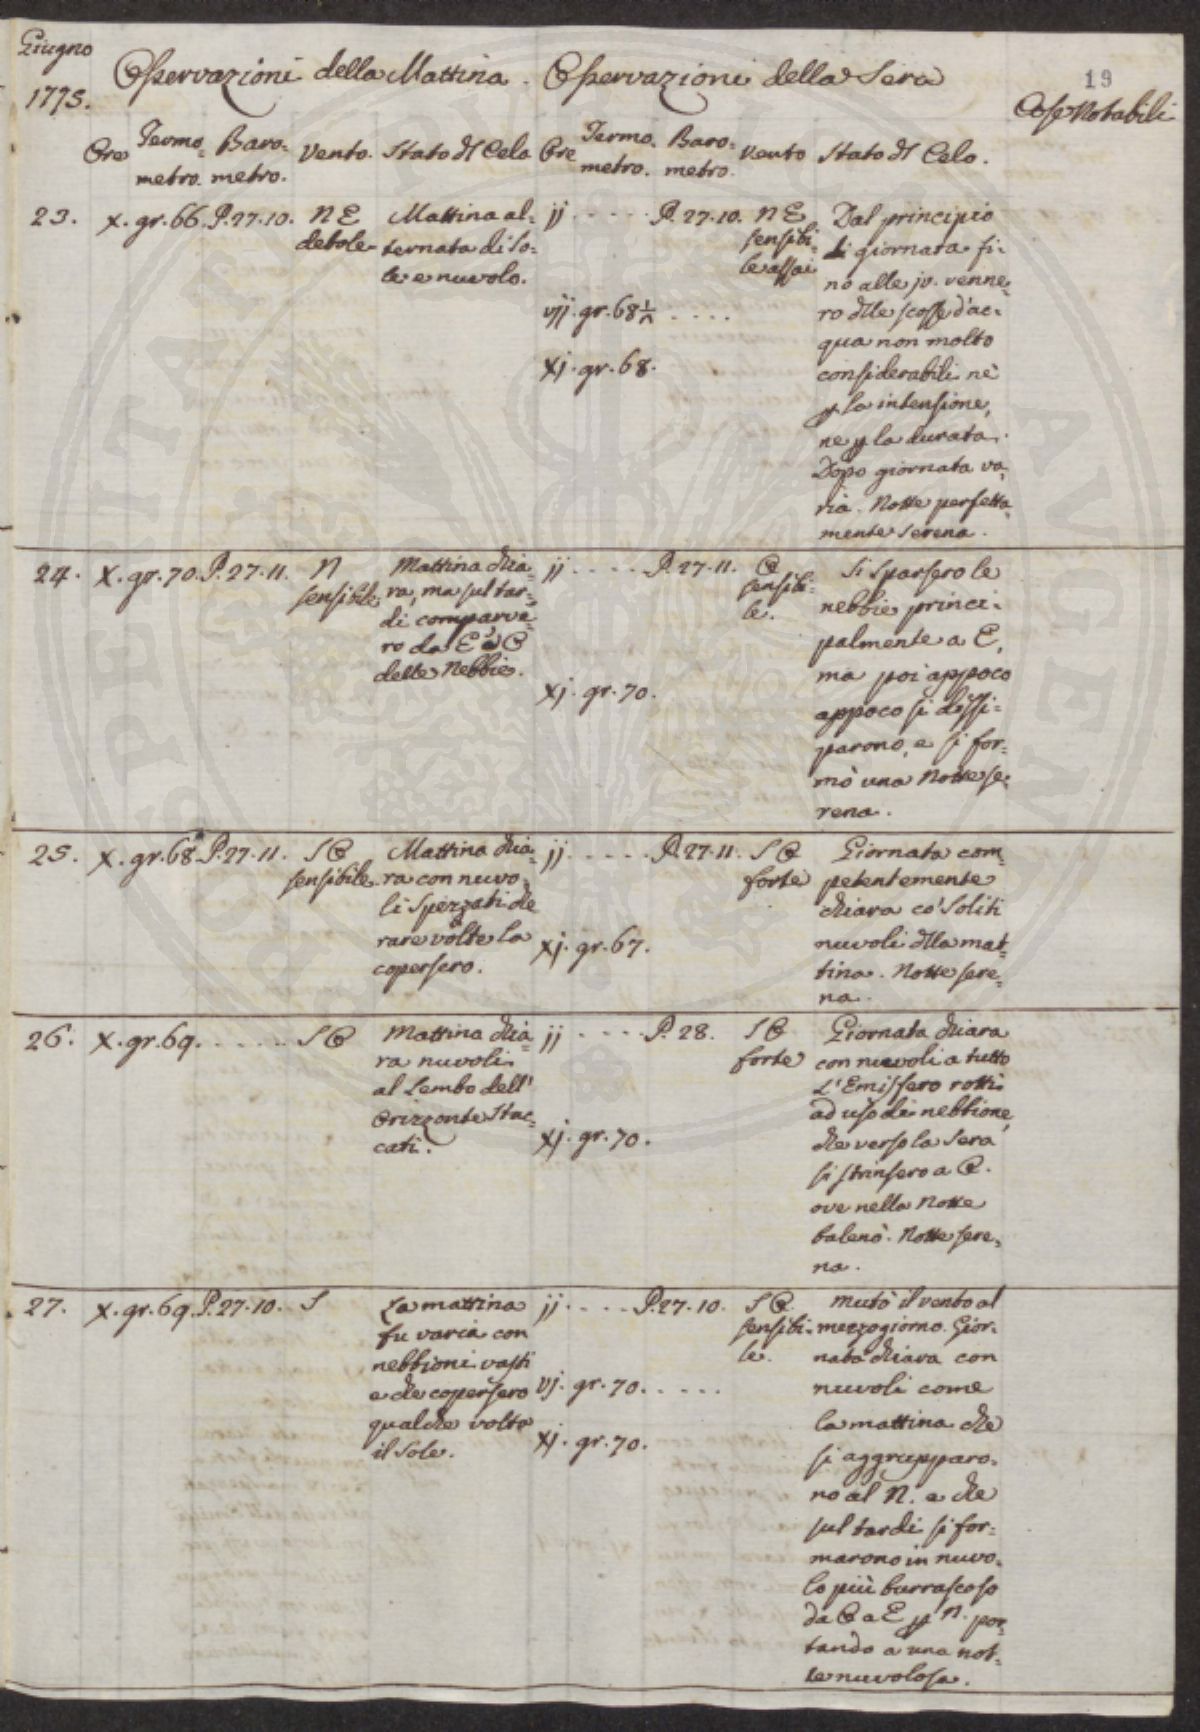 Giugno
1775.
Osservazioni della Mattina. Osservazioni della Sera
19
Cose Notabili
Ore Termo=metro. Baro=metro. Vento. Stato dl Celo
Ore Termo.metro. Baro=metro. Vento Stato dl Celo.
23. x. gr. 66. P. 27. 10. NE debole
Mattina al=
ternata di so=
le e nuvolo.
jj . . . . . P. 27. 10. NE sensibi=le assai
vjj. gr. 68 1/2 . . . .
xj. gr. 68.
Dal principio
di giornata fi=
no alle jv. venne=
ro dlle scosse d'ac=
qua non molto
considerabili nè
p la intensione,
ne p la durata.
Dopo giornata va=
ria. Notte perfetta
mente serena.
24. x. gr. 70. P. 27. 11. N sensibile
Mattina chia=
ra, ma sul tar=
di comparve=
ro da E a O
delle Nebbie.
jj . . . . P. 27. 11. O sensibi=le.
xj. gr. 70.
Si sparsero le
nebbie princi=
palmente a E,
ma poi appoco
appoco si dissi=
parono, e si for=
mò una Notte se=
rena.
25. x. gr. 68. P. 27. 11. SO sensibile
Mattina chia=
ra con nuvo=
li spezzati che
rare volte la
copersero.
jj. . . . . P. 27. 11. SO forte
xj. gr. 67.
Giornata com=
petentemente
chiara co' soliti
nuvoli dlla mat=
tina. Notte sere=
na.
26. x. gr. 69. . . . . . SO
Mattina chia=
ra nuvoli
al Lembo dell'
Orizzonte stac=
cati.
jj . . . . P. 28. SO forte
xj. gr. 70.
Giornata chiara
con nuvoli a tutto
L'Emisfero rotti
ad uso di nebbione,
che verso la sera
si strinsero a O.
ove nella Notte
balenò. Notte sere=
na.
27. x. gr. 69. P. 27. 10. S
La mattina
fu varia con
nebbioni vasti
e che copersero
qualche volta
il Sole.
jj. . . . . P. 27. 10. SO sensibi=le.
vj. gr. 70. . . . .
xj. gr. 70.
Mutò il vento al
mezzogiorno. Gior=
nata chiara con
nuvoli come
la mattina che
si aggrupparo=
no al N. e che
sul tardi si for=
marono in nuvo=
lo più burrascoso
da O a E p N. por=
tando a una not=
te nuvolosa.